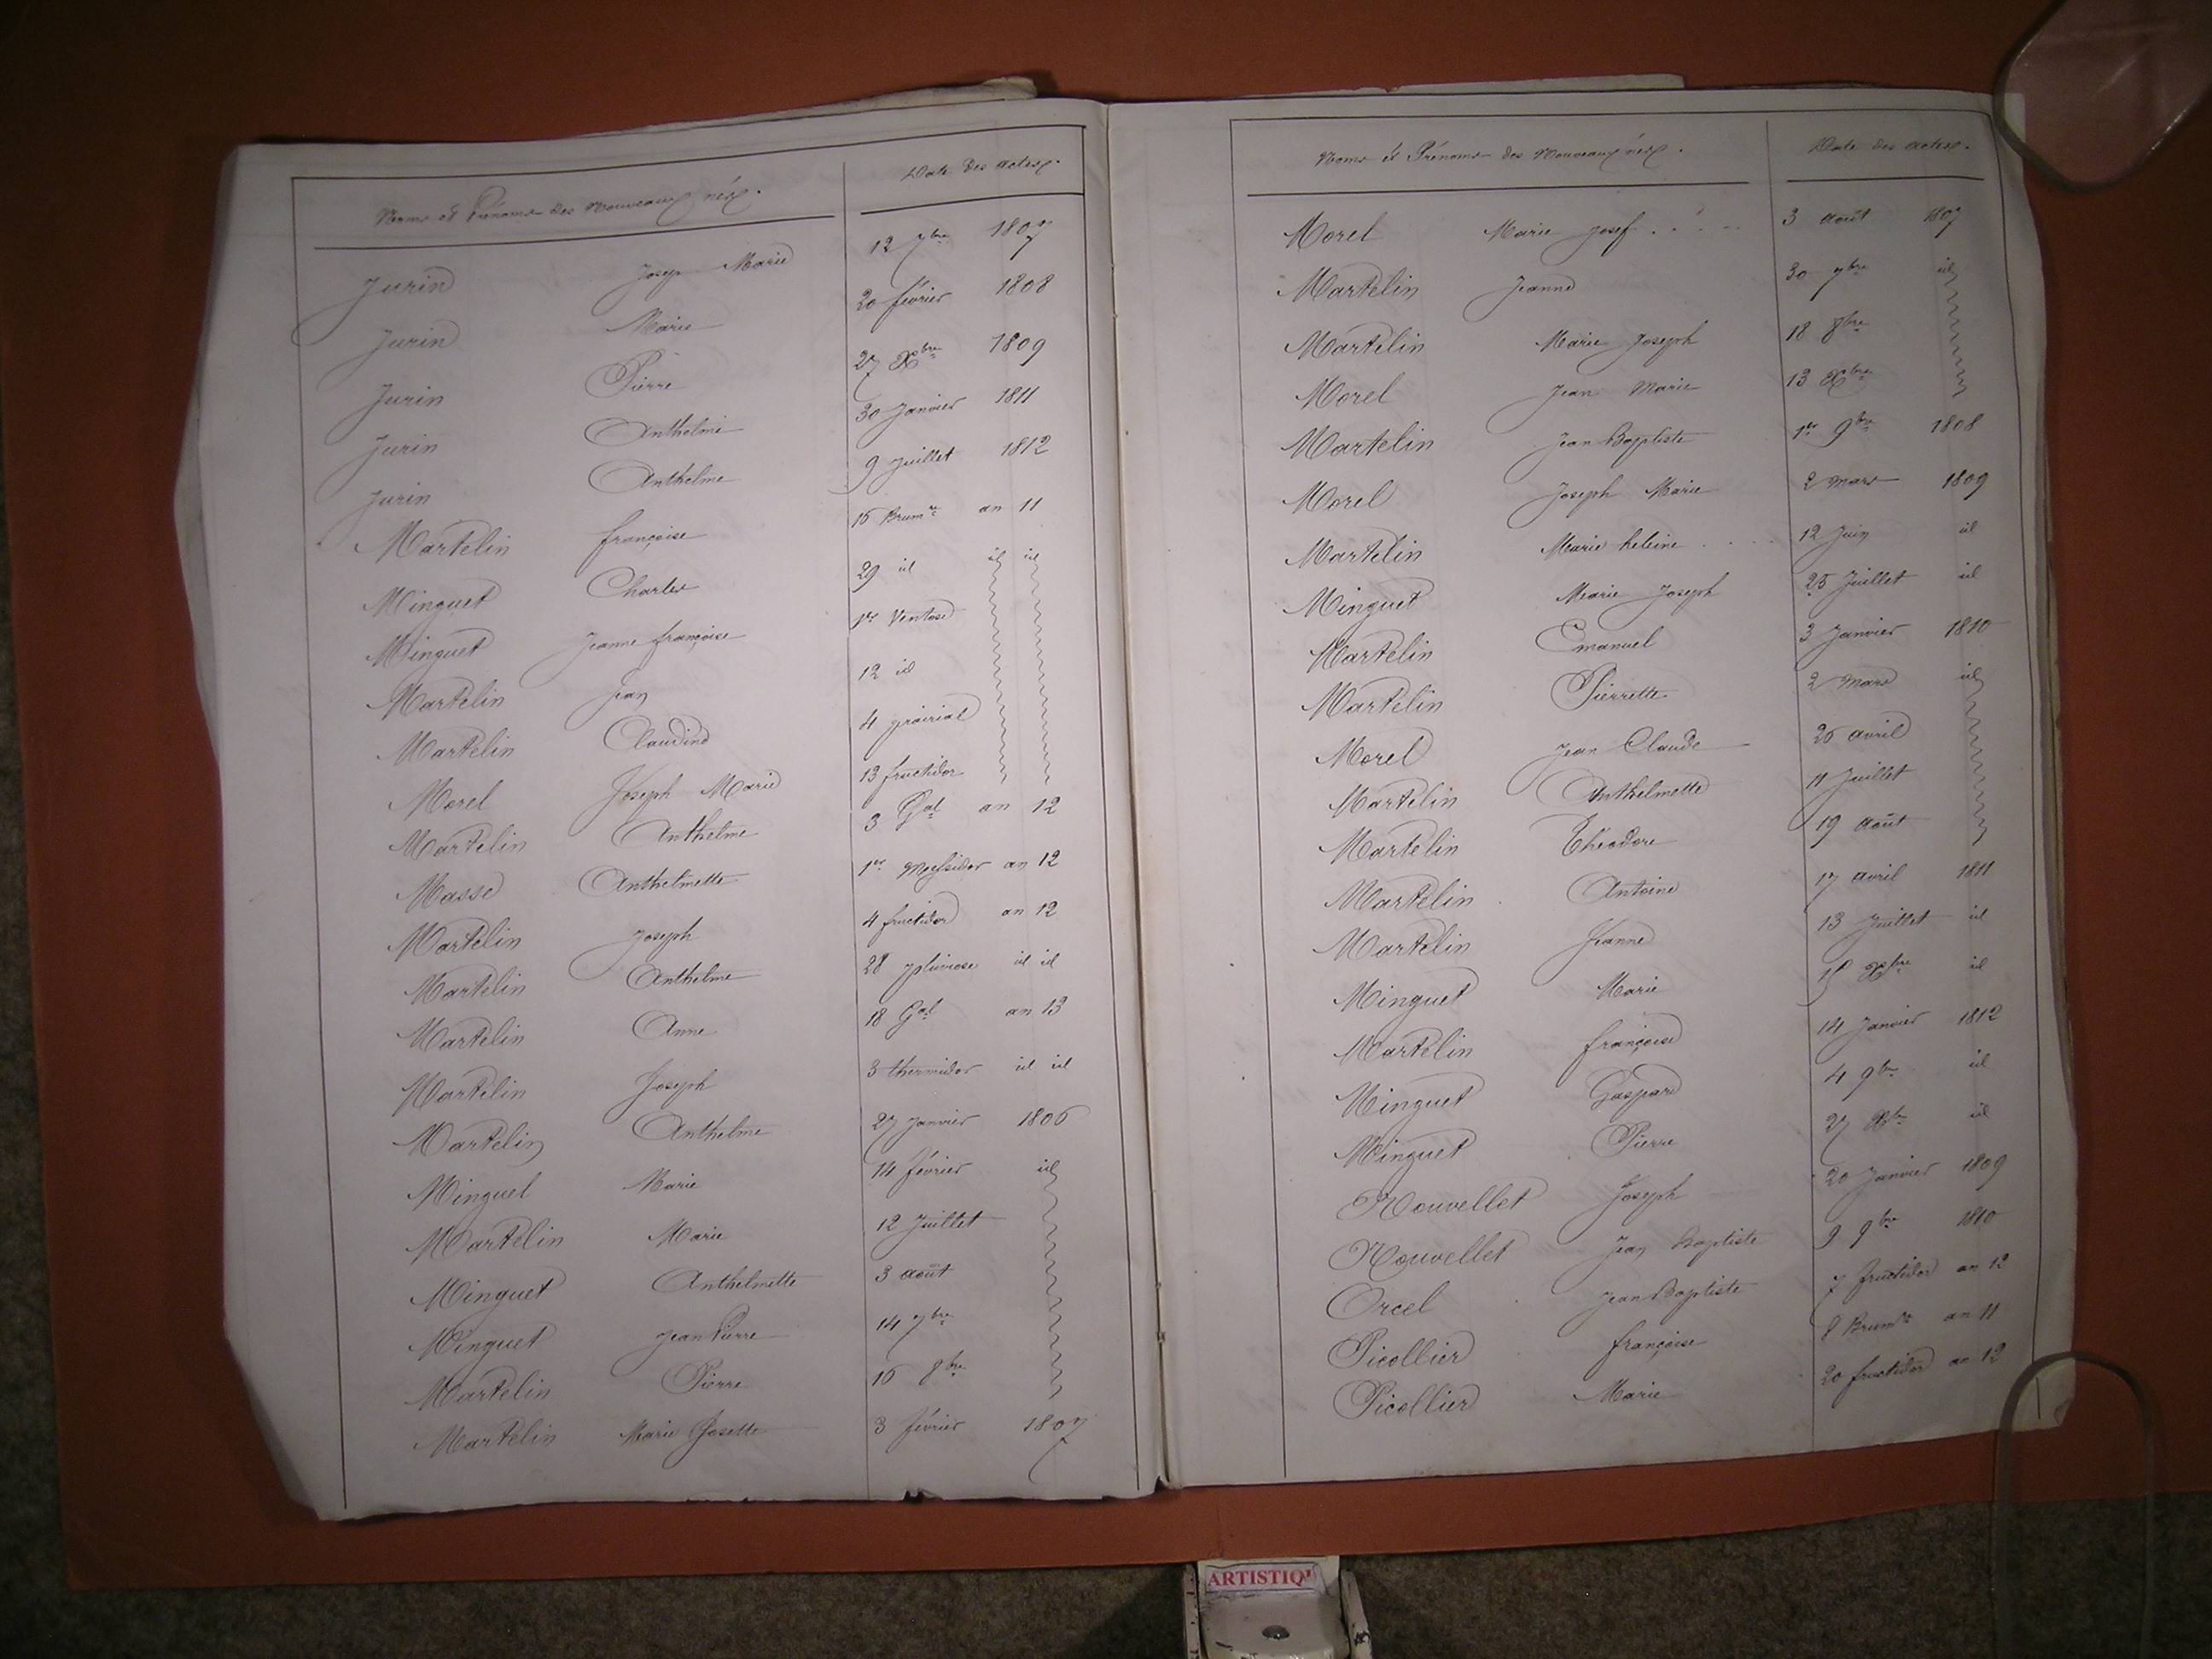 Noms et Prénoms des Nouveaux nés. Date des actes.
Jurin Joseph Marie 12 7bre 1807
Jurin Marie 20 février 1808
Jurin Pierre 27 Xbre 1809
Jurin Anthelme 30 Janvier 1811
Jurin Anthelme 9 Juillet 1812
Martelin françoise 16 Brumre an 11
Minguet Charles 29 id id id
Minguet Jeanne françoise 1er Ventose
Martelin Jean 12 id
Martelin Claudine 4 prairial
Morel Joseph Marie 13 fructidor
Martelin Anthelme 3 Gal an 12
Masse Anthelmette 1er Messidor an 12
Martelin Joseph 4 fructidor an 12
Martelin Anthelme 28 pluviose id id
Martelin Anne 18 Gal an 13
Martelin Joseph 3 thermidor id id
Martelin Anthelme 27 Janvier 1806
Minguet Marie 14 février id
Martelin Marie 12 Juillet
Minguet Anthelmette 3 août
Minguet Jean Pierre 14 7bre
Martelin Pierre 16 8bre
Martelin Marie Josette 3 février 1807
Noms et Prénoms des Nouveaux nés. Date des actes.
Morel Marie Josef 3 août 1807
Martelin Jeanne 30 7bre id
Martelin Marie Joseph 18 8bre
Morel Jean Marie 13 Xbre
Martelin Jean Baptiste 1er 9bre 1808
Morel Joseph Marie 2 mars 1809
Martelin Marie heleine 12 Juin id
Minguet Marie Joseph 25 Juillet id
Martelin Emanuel 3 Janvier 1810
Martelin Pierrette 2 mars id
Morel Jean Claude 26 avril
Martelin Anthelmette 11 Juillet
Martelin Théodore 19 Août
Martelin Antoine 17 avril 1811
Martelin Jeanne 13 Juillet id
Minguet Marie 18 Xbre id
Martelin françoise 14 Janvier 1812
Minguet Gaspard 4 9bre id
Minguet Pierre 27 Xbre id
Nouvellet Joseph 20 Janvier 1809
Nouvellet Jean Baptiste 9 9bre 1810
Orcel Jean Baptiste 7 fructidor an 12
Picollier françoise 8 Brumre an 11
Picollier Marie 20 fructidor an 12
ARTISTIQ